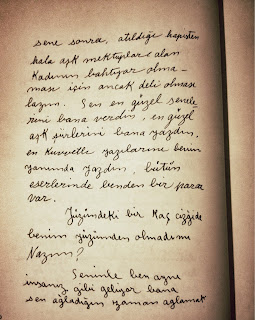 sene sonra, atıldığı hapisten
hala aşk mektupları alan
kadının bahtiyar olma-
ması için ancak deli olması
lazım. Sen en güzel senele-
rini bana verdin, en güzel
aşk şiirlerini bana yazdın,
en kuvvetli yazılarını benim
yanımda yazdın, bütün
eserlerinde benden bir parça
var.
Yüzündeki bir kaç çizgide
benim yüzümden olmadımı
Nazım?
Seninle ben aynı
insanız gibi geliyor bana
sen ağladığın zaman ağlamak